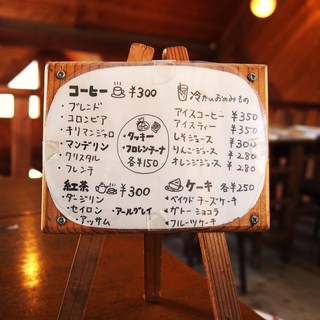 コーヒー ¥300
・ブレンド
・コロンビア
・キリマンジャロ
・マンデリン
・クリスタル
・フレンチ
・クッキー
・フロレンチーナ
各¥150
冷たいおのみもの
アイスコーヒー ¥350
アイスティー ¥350
しそジュース ¥300
りんごジュース ¥280
オレンジジュース ¥280
紅茶 ¥300
・ダージリン
・セイロン ・アールグレイ
・アッサム
ケーキ 各¥250
・ベイクドチーズケーキ
・ガトーショコラ
・フルーツケーキ